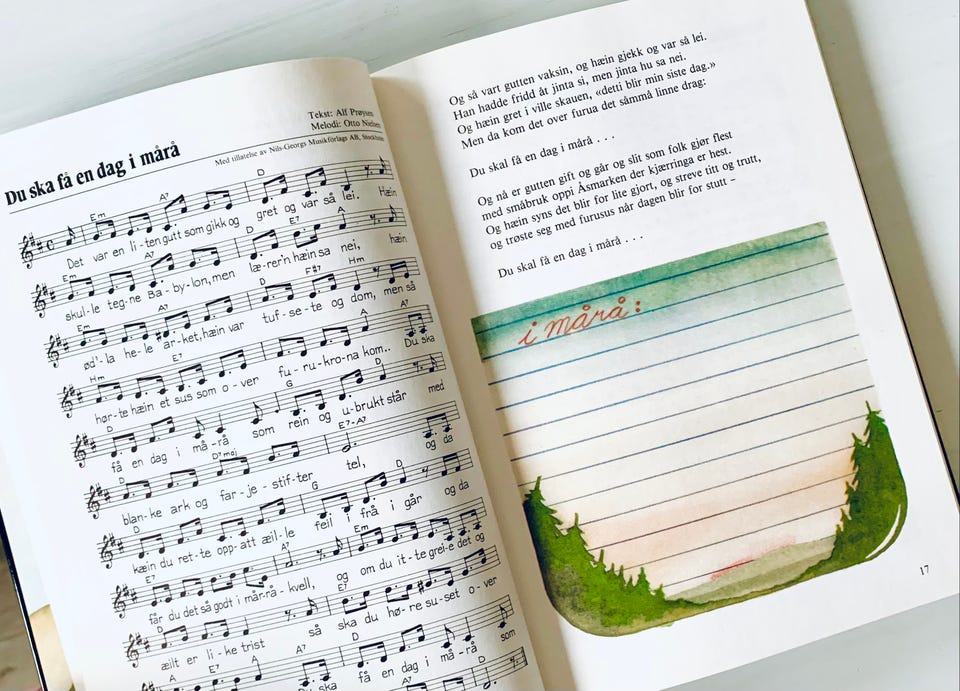 Du ska få en dag i mårå
Tekst: Alf Prøysen
Melodi: Otto Nielsen
Med tillatelse av Nils-Georgs Musikförlags AB, Stockholm
Em A7 D
Det var en li-ten gutt som gikk og gret og var så lei. Hæin
Em A7 D E7 A
skul-le teg-ne Ba-by-lon, men læ-rer'n hæin sa nei, hæin
Em A7 D F#7 Hm
ød'-la he-le ar-ket, hæin var tuf-se-te og dom, men så
Hm E7 A A7
hør-te hæin et sus som o-ver fu-ru-kro-na kom.. Du ska
D G D
få en dag i må-rå som rein og u-brukt står med
D D7maj E7-A7
blan-ke ark og far-je-stif-ter tel, og da
D G D
kæin du ret-te opp-att æil-le feil i frå i går og da
E7 A7 Em
får du det så godt i mår-rå-kvell, og om du it-te greI-e det og
D E7
æilt er li-ke trist så ska du hø-re su-set o-ver
A E7 A A7 D
ska få en dag i må-rå som
Og så vart gutten vaksin, og hæin gjekk og var så lei.
Han hadde fridd åt jinta si, men jinta hu sa nei.
Og hæin gret i ville skauen, «detti blir min siste dag.»
Men da kom det over furua det såmmå linne drag:
Du skal få en dag i mårå . . .
Og nå er gutten gift og går og slit som folk gjør flest
med småbruk oppi Åsmarken der kjærringa er hest.
Og hæin syns det blir for lite gjort, og streve titt og trutt,
og trøste seg med furusus når dagen blir for stutt –
Du skal få en dag i mårå . . .
i mårå:
17